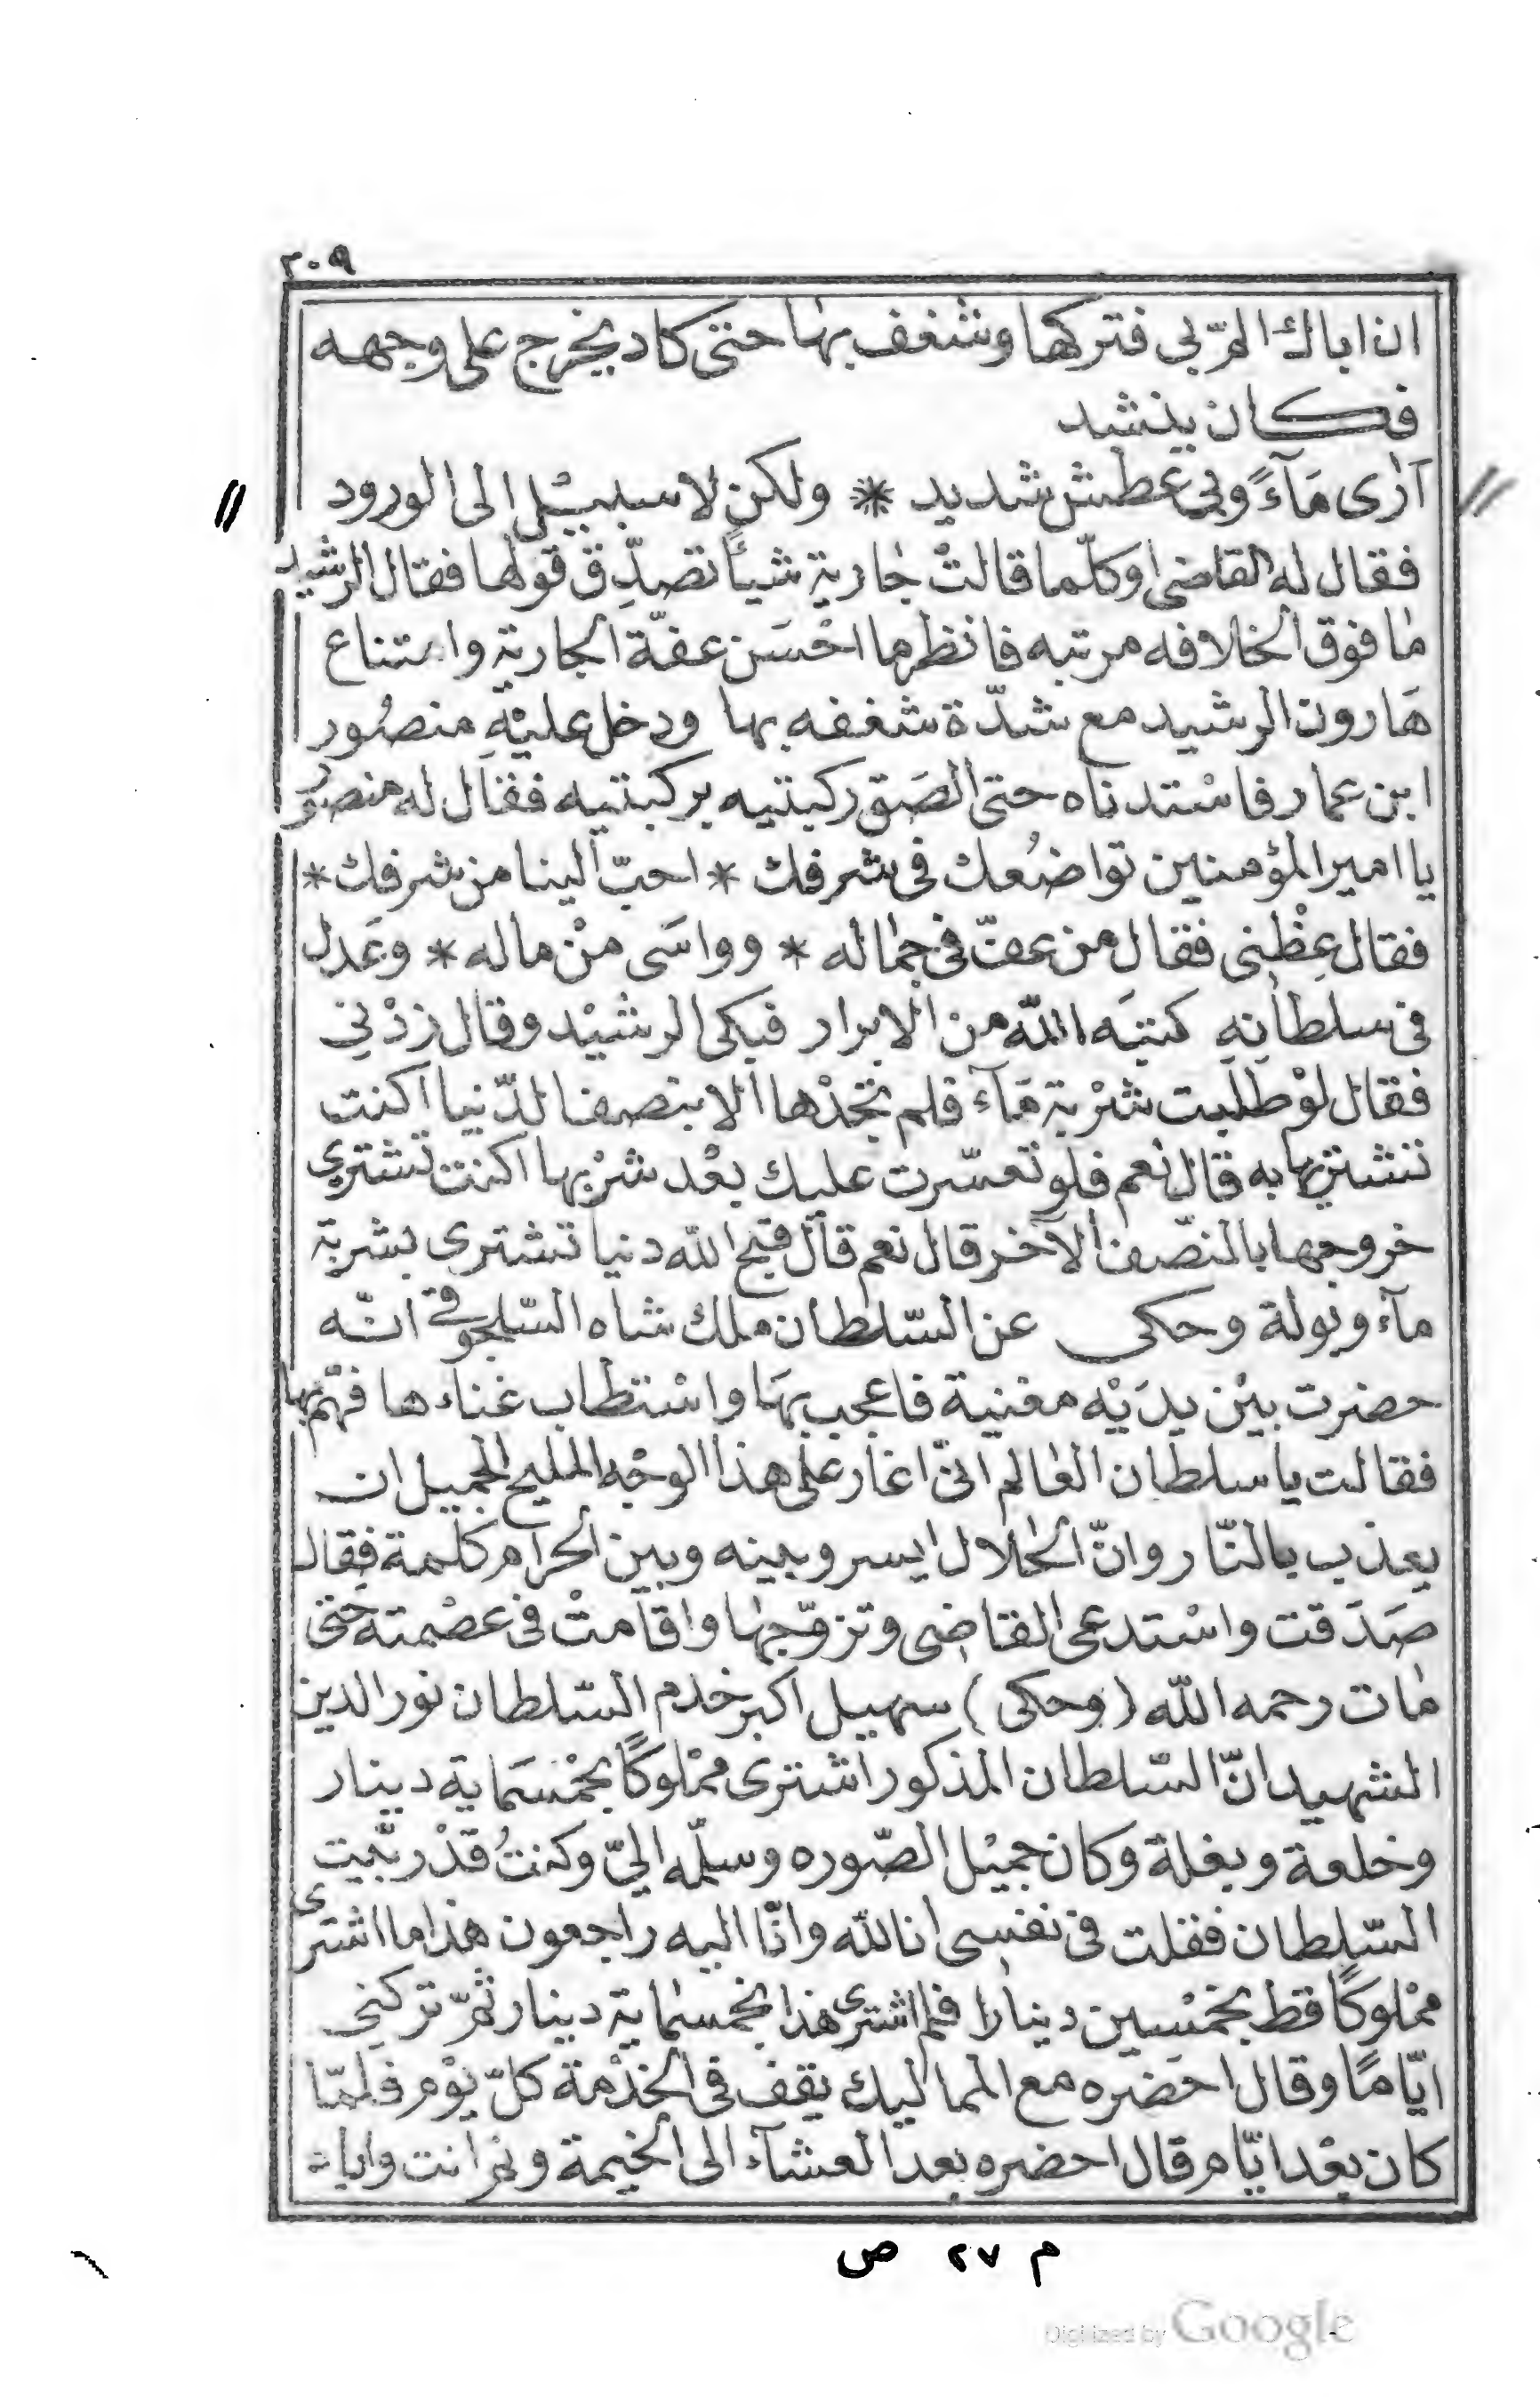 ٢٠٩
ان اباك الَمّ بى فتركها وشغف بها حتى كاد يخرج على وجهه
فكان ينشد
آرٰى مَآءً وبى عطش شديد * ولكن لا سبيْل الى الورود
فقال له القاضى اوكلّما قالتْ جٰارية شيأً تصدِّق قولها فقال الرشيد
مٰا فوق الخلافه مرتبه فانظر ما احْسَن عفّة الجارية وامتناع
هَارون الرشيد مع شدّة شغفه بها ودخل عليْهِ منصُور
ابن عمار فاسْتدناه حتى الصَق ركبتيه بركبتيه فقال له منصُور
يا امير المؤمنين تواضُعك فى شرفك * احبّ الينا من شرفك *
فقال عِظْنى فقال من عفّ فى جمٰاله * وواسَى منْ ماله * وعَدل
فى سلطانِهِ كتبَه اللّه من الابرار فبكى الرشيْد وقال زدْنِى
فقال لوْ طلبت شرْبة مَآء فلم تجدْها الا بنصف الدّنيا اكنت
تشتريها به قال نعم فلو تعسّرت عليك بعْد شرْبها اكنت تشترى
خروجها بالنصّف الآخر قال نعم قال قبح الله دنيا تشترى بشربة
مآء وبولة وحكى عن السّلطان ملك شاه السّلجوقى انّه
حضرت بيْن يدَيْه مغنية فاعجب بهَا واسْتطاب غناءها فهّم بها
فقالت يا سلطان العٰالم انّى اغار على هذا الوجْه المليح الجميل ان
يعذب بالنّار وانّ الحلال ايسر وبينه وبين الحرام كلمة فقال
صَدَقت واسْتدعى القاضى وتزوّجهٰا واقامتْ فى عصْمته حَتى
مٰات رحمه اللّه (وحكى) سهيل اكبر خدم السّلطان نور الدين
الشهيد انّ السّلطان المذكور اشترى ممْلوكًا بخمْسَماية دينار
وخلعة وبغلة وكان جميْل الصّوره وسلّمه اليّ وكنتُ قدْ ربّيت
السّلطان فقلت فى نفسى انا للّه وانّا اليه راجعون هذا ما اشترى
ممْلوكًا قط بخمْسين دينارا فلم اشترى هذا بخمسمٰاية دينار ثمّ تركنى
ايّامًا وقال احضره مع المماليك يقف فى الخدْمة كلّ يوْم فلمّا
كان بعْد ايّام قال احضره بعد العشآء الى الخيمة ونم انت واياه
م ٢٧ ص
Digitized by Google